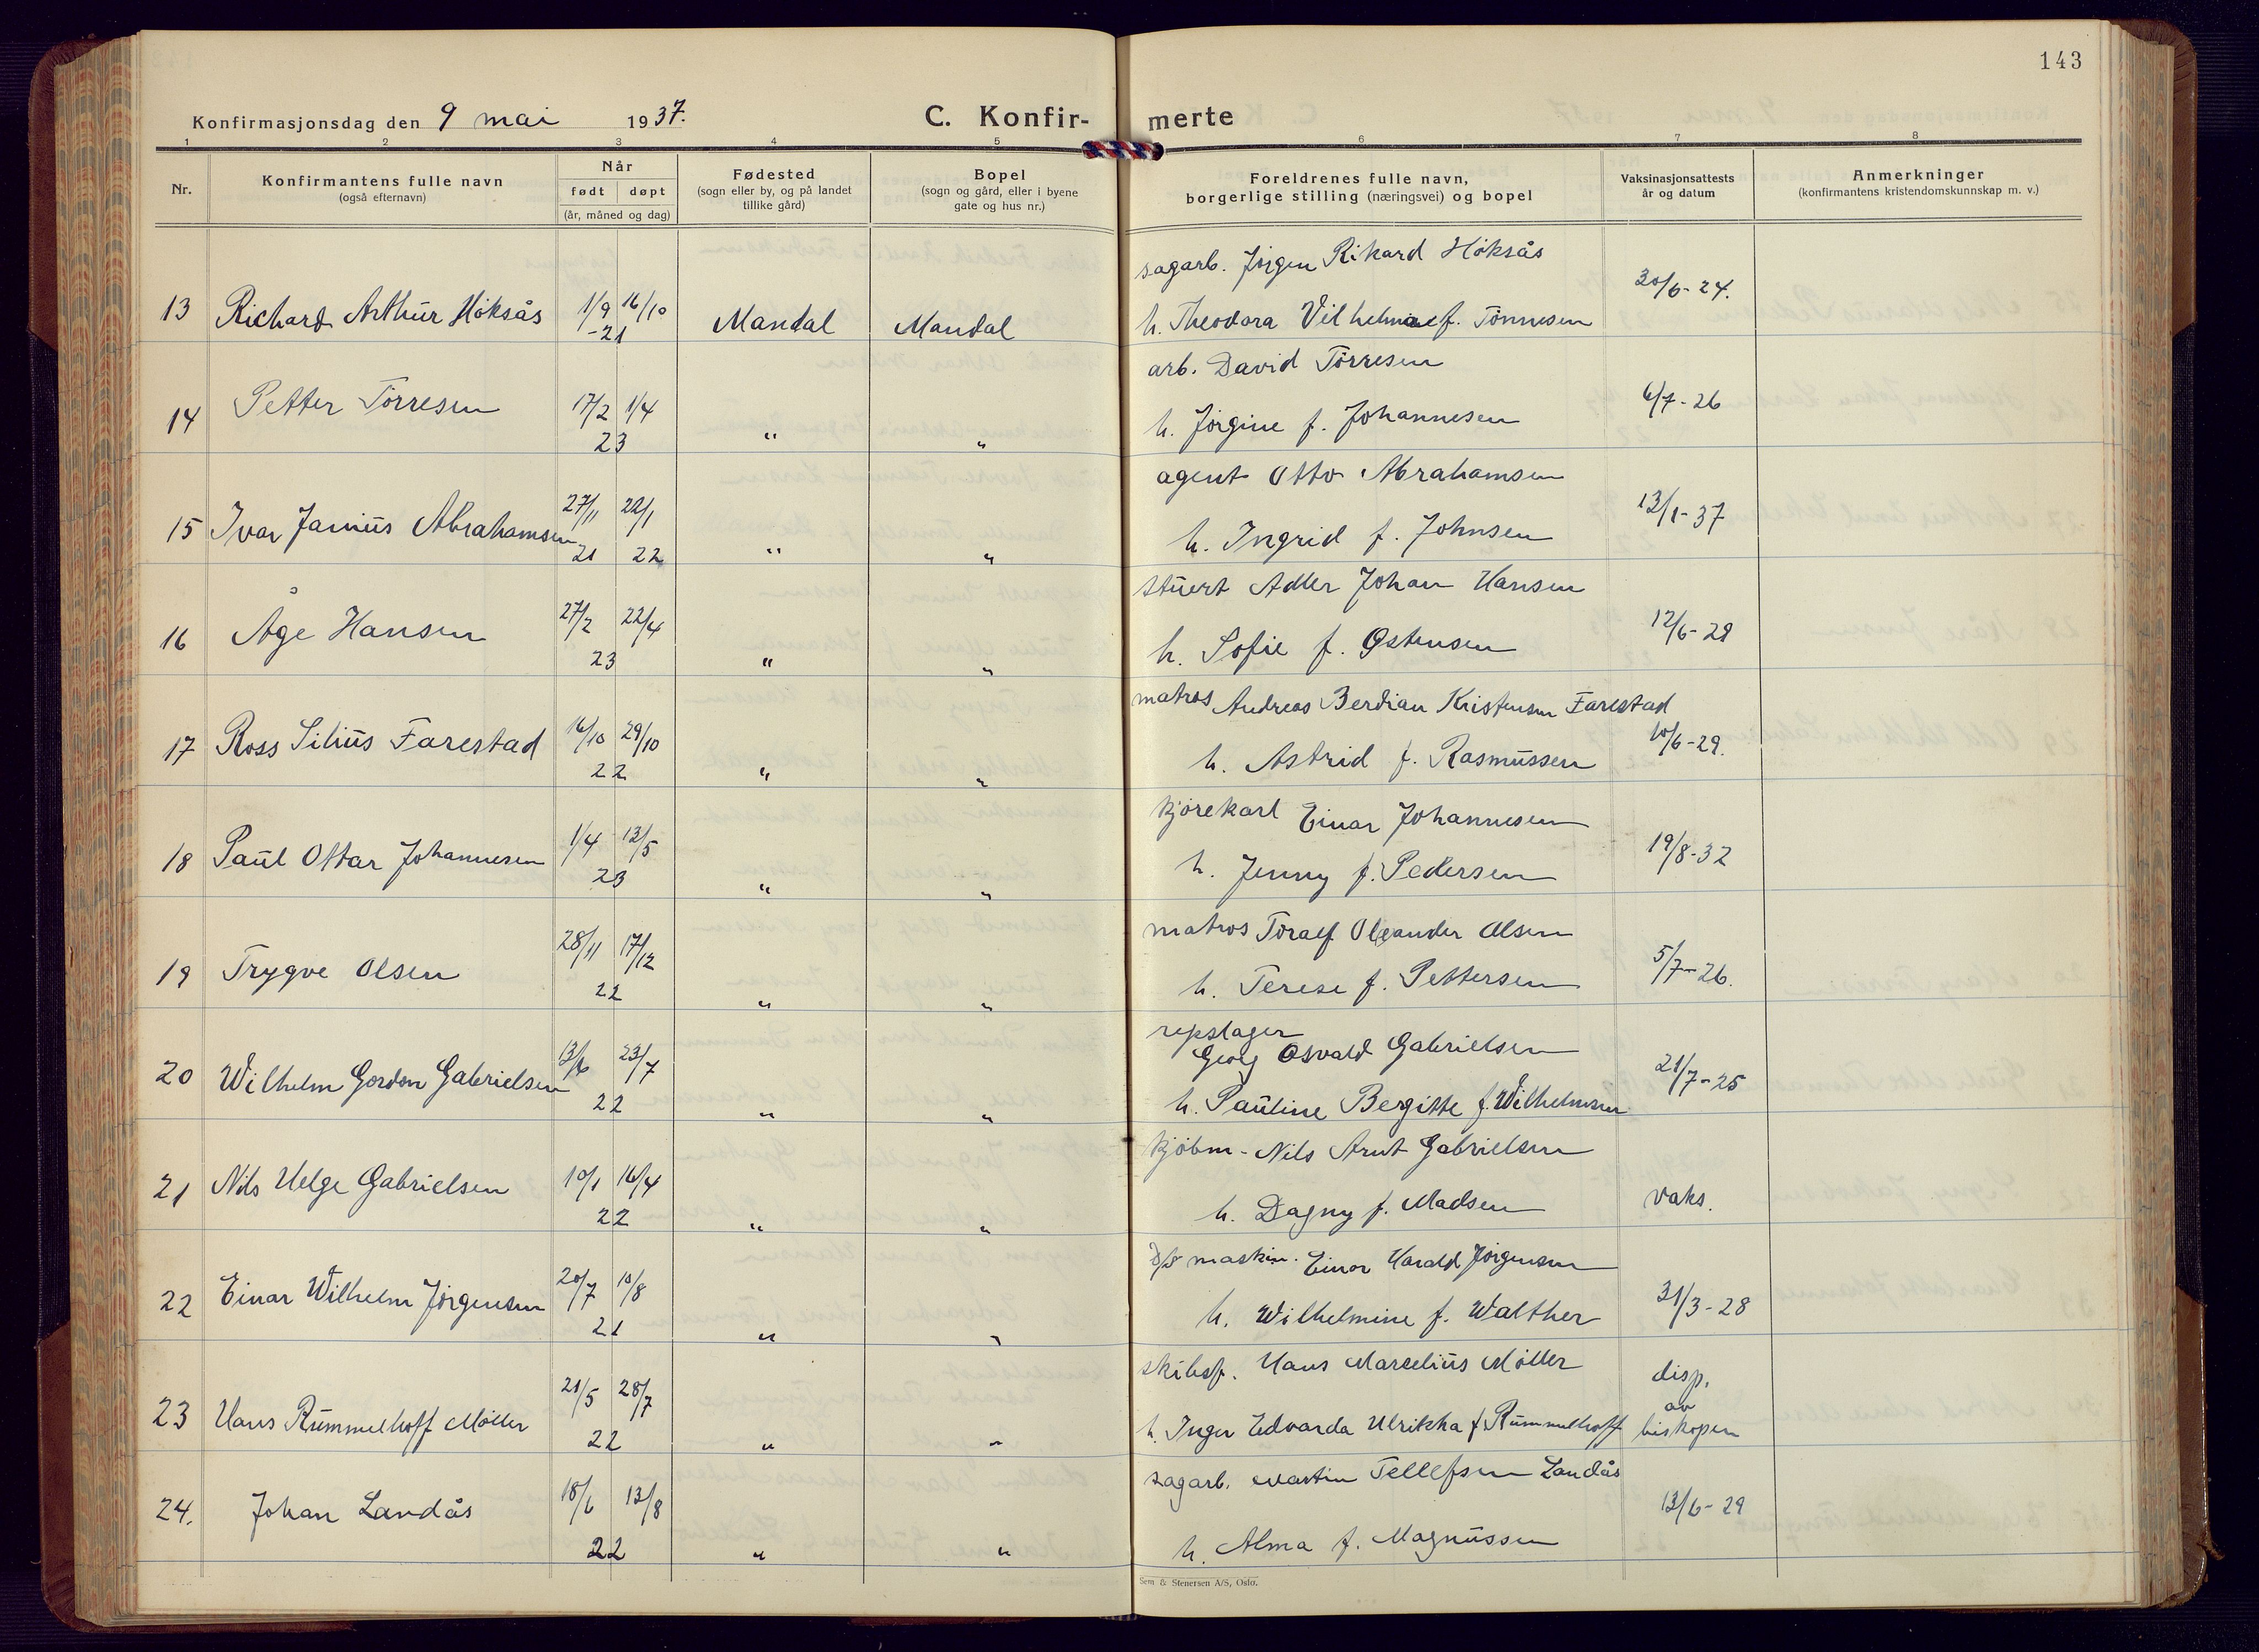 143
Konfirmasjonsdag den 9 mai 1937.
C. Konfir- merte
1 2 3 4 5 6 7 8
Nr.
Konfirmantens fulle navn
(også efternavn)
Når
født døpt
(år, måned og dag)
Fødested
(sogn eller by, og på landet
tillike gård)
Bopel
(sogn og gård, eller i byene
gate og hus nr.)
Foreldrenes fulle navn,
borgerlige stilling (næringsvei) og bopel
Vaksinasjonsattests
år og datum
Anmerkninger
(konfirmantens kristendomskunnskap m. v.)
sagarb. Jörgen Rikard Höksås
13 Richard Arthur Höksås 1/9 16/10 Mandal Mandal h. Theodora Vilhelmine f. Tönnesen 30/6-24.
-21
arb. David Törresen
14 Petter Törresen 17/2 1/4 " " h. Jörgine f. Johannesen 6/7-26
23
agent Otto Abrahamsen
15 Ivar Janius Abrahamsen 27/11 22/1 " " h. Ingrid f. Johnsen 13/1-37
21 22
stuert Adler Johan Hansen
16 Åge Hansen 27/2 22/4 " " h. Sofie f. Östensen 12/6-29
23
matros Andreas Berdian Kristensen Farestad
17 Ross Silius Farestad 16/10 29/10 " " h. Astrid f. Rasmussen 10/6-29.
22
kjörekarl Einar Johannesen
18 Paul Ottar Johannesen 1/4 13/5 " " h. Jenny f. Pedersen 19/8-32
23
matros Toralf Olexander Olsen
19 Trygve Olsen 28/11 17/12 " " h. Terese f. Pettersen 5/7-26.
22
repslager
Georg Osvald Gabrielsen
20 Wilhelm Gordon Gabrielsen 13/6 23/7 " " h. Pauline Bergitte f. Wilhelmsen 21/7-25
22
kjöbm. Nils Arnt Gabrielsen
21 Nils Helge Gabrielsen 10/1 16/4 " " h. Dagny f. Madsen vaks.
22
maskin. Einar Harald Jörgensen
22 Einar Wilhelm Jörgensen 20/7 10/8 " " h. Wilhelmine f. Walther 31/3-28
21
skibsf. Hans Marselius Möller
23 Hans Rummelhoff Möller 21/5 28/7 " " h. Inger Edvarda Ulrikka f. Rummelhoff disp. av biskopen
22
sagarb. Martin Tellefsen Landås
24. Johan Landås 18/6 13/8 " " h. Alma f. Magnussen 13/6-29
22
Sem & Stenersen A/S, Oslo.